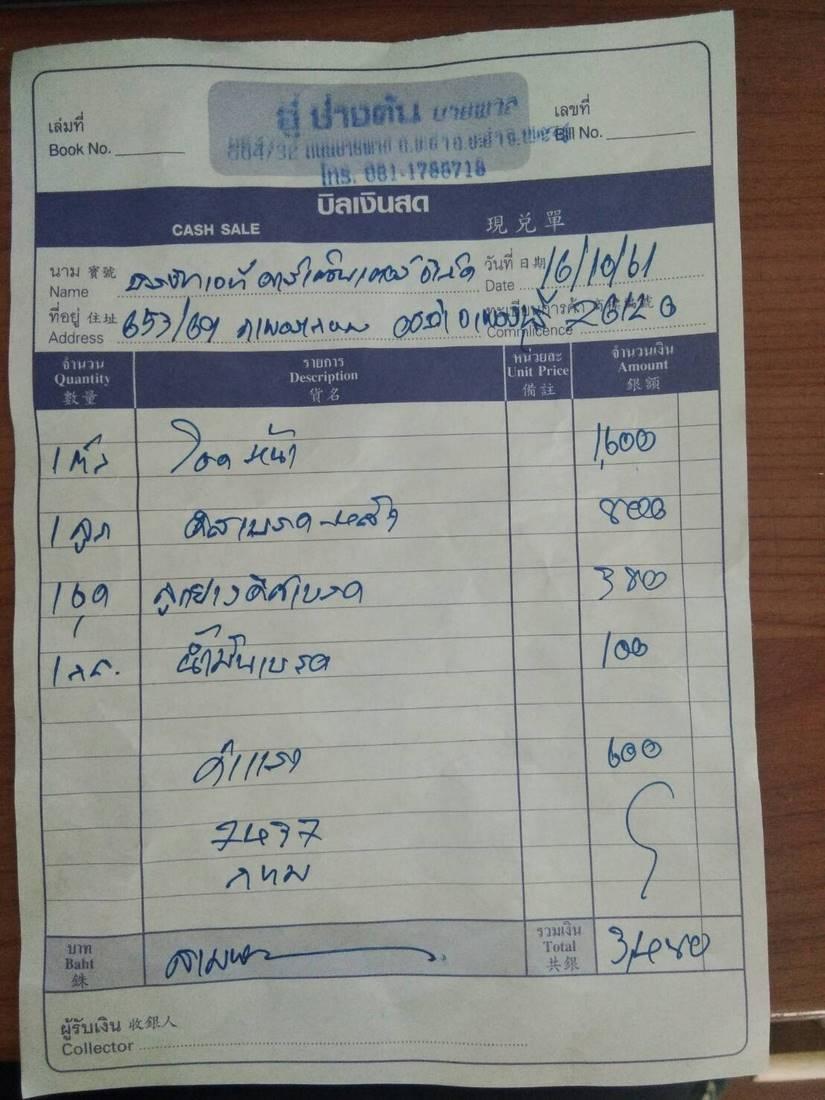 เล่มที่
Book No.
เลขที่
Bill No.
อู่ ช่างต้น บายพาส
โทร. 081-1786718
บิลเงินสด
CASH SALE 現兑單
นาม 寳號
Name
วันที่ 日期
Date 16/10/61
ที่อยู่ 住址
Address 653/69
ทะเบียนการค้า 商標編號
Commlicence 20120
จำนวน รายการ หน่วยละ จำนวนเงิน
Quantity Description Unit Price Amount
數量 貨名 備註 銀額
1 ตัว โชคหน้า 1,600
1 ลูก ดิสเบรคหลัง 800
1 ชุด ลูกยางดิสเบรค 380
น้ำมันเบรค 100
ค่าแรง 600
7437
กทม
บาท
Baht
銖
รวมเงิน
Total
共銀
3,480
ผู้รับเงิน 收銀人
Collector